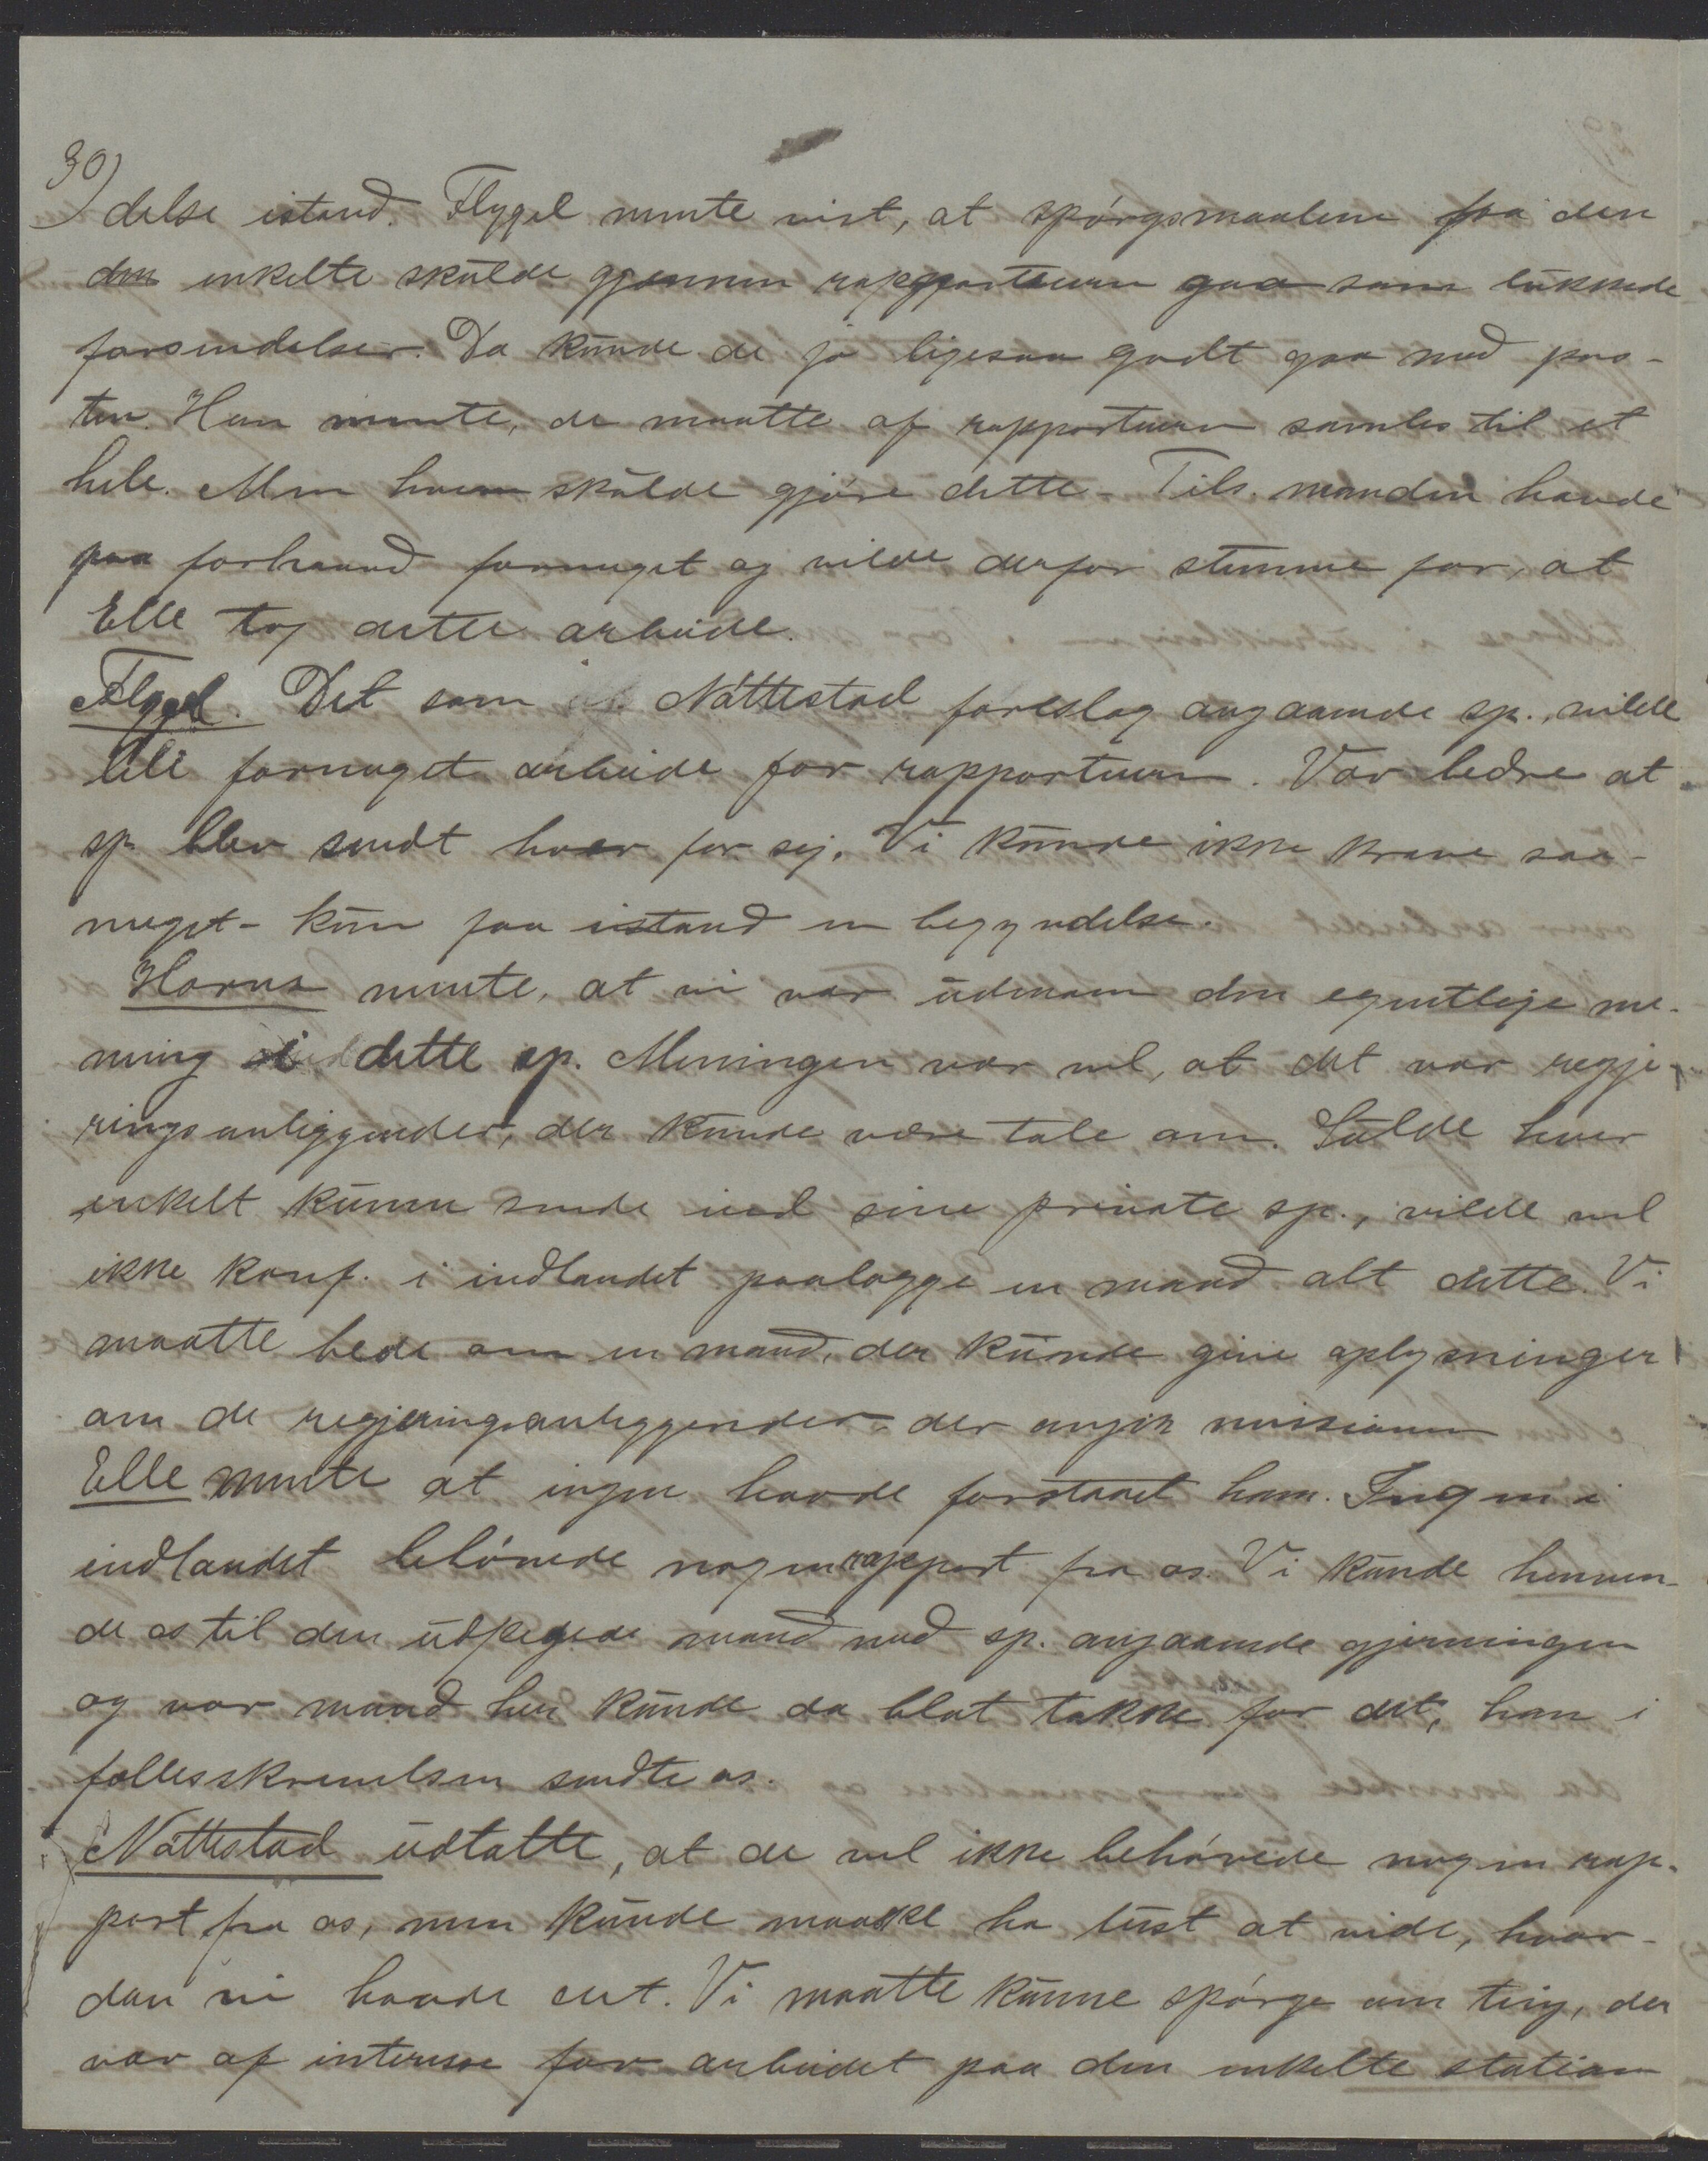 30)
delse istand. Flygel mente vist, at spørgsmaalene fra den
den enkelte skulde gjennem rapportøren gaa som lukkede
forsendelser. Da kunde de jo ligesaa godt gaa med pos-
ten. Han mente, de maatte af rapportøren samles til et
hele. Men hvem skulde gjøre dette – Tils.manden havde
paa forhaand formeget og vilde derfor stemme for, at
Elle tog dette arbeide.
Flygel. Det som Nøttestad foreslog angaaende sp., vilde
bli formeget arbeide for rapportøren. Var bedre at
sp. blev sendt hver for sig. Vi kunde ikke kræve saa-
meget – kun faa istand en begyndelse.
Horne mente, at vi var udenom den egentlige me-
ning i dette sp. Meningen var vel, at det var regje-
ringsanliggender, der kunde være tale om. Skulde hver
enkelt kunne sende ind sine private sp., vilde vel
ikke konf. i indlandet paalægge en mand alt dette. Vi
maatte bede om en mand, der kunde give oplysninger
om de regjeringsanliggender der angik missionen
Elle mente at ingen havde forstaaet ham. Ingen i
indlandet behøvede nogen rapport fra os. Vi kunde henven-
de os til den udpegede mand med sp. angaaende gjerningen
og vor mand her kunde da blot takke for det, han i
fællesskrivelsen sendte os.
Nøttestad udtalte, at de vel ikke behøvede nogen rap-
port fra os, men kunde maaske ha lyst at vide, hvor-
dan vi havde det. Vi maatte kunne spørge om ting, der
var af interesse for arbeidet paa den enkelte station